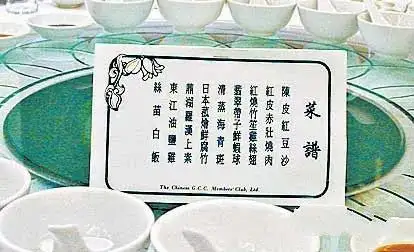 菜譜
陳皮紅豆沙
紅皮赤壯燒肉
紅燒竹笙雞絲翅
翡翠帶子鮮蝦球
清蒸海青斑
日本菰燴鮮腐竹
鼎湖羅漢上素
東江油鹽雞
絲苗白飯
The Chinese G.C.C. Members' Club, Ltd.